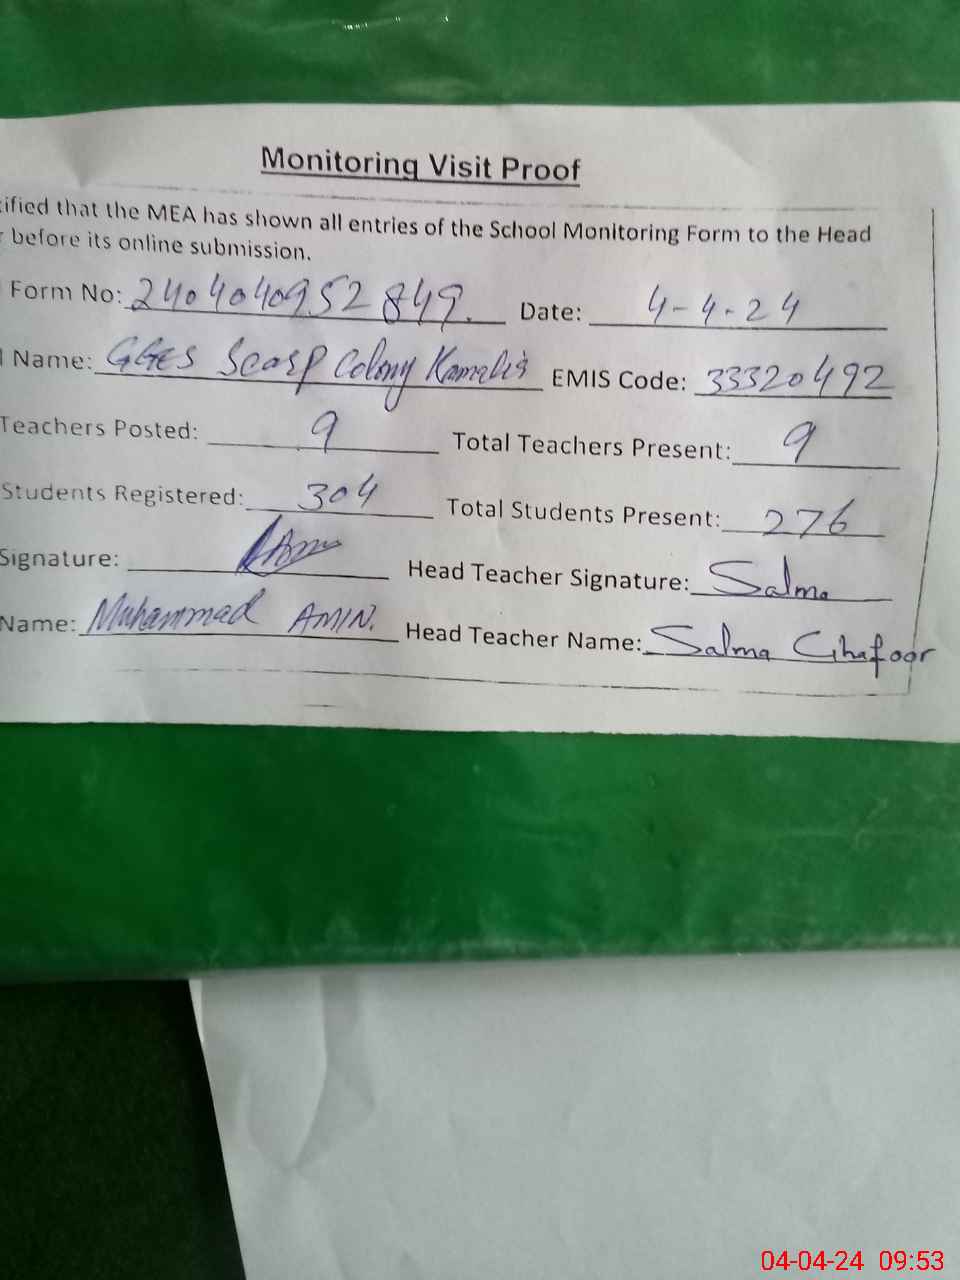 Monitoring Visit Proof
ified that the MEA has shown all entries of the School Monitoring Form to the Head
r before its online submission.
Form No: 2404040952849. Date: 4-4-24
l Name: GGES Scarp Colony Kamalia EMIS Code: 33320492
Teachers Posted: 9 Total Teachers Present: 9
Students Registered: 304 Total Students Present: 276
Signature: Head Teacher Signature: Salma
Name: Muhammad AMIN. Head Teacher Name: Salma Ghafoor
04-04-24 09:53